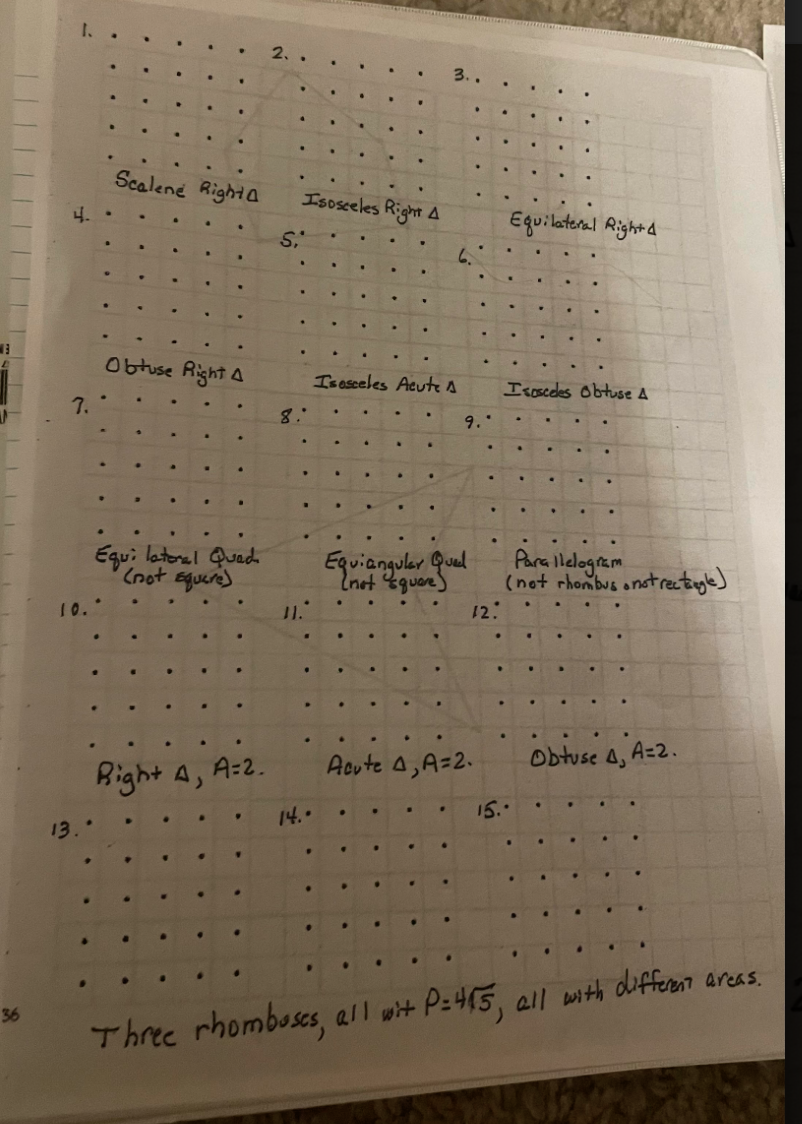 1.
2.
3.
Scalene Right Δ
Isosceles Right Δ
Equilateral Right Δ
4.
5.
6.
Obtuse Right Δ
Isosceles Acute Δ
Isosceles Obtuse Δ
7.
8.
9.
Equilateral Quad
(not square)
Equiangular Quad
(not square)
Parallelogram
(not rhombus, not rectangle)
10.
11.
12.
Right Δ, A=2.
Acute Δ, A=2.
Obtuse Δ, A=2.
13.
14.
15.
36
Three rhombuses, all wit P=4√5, all with different areas.